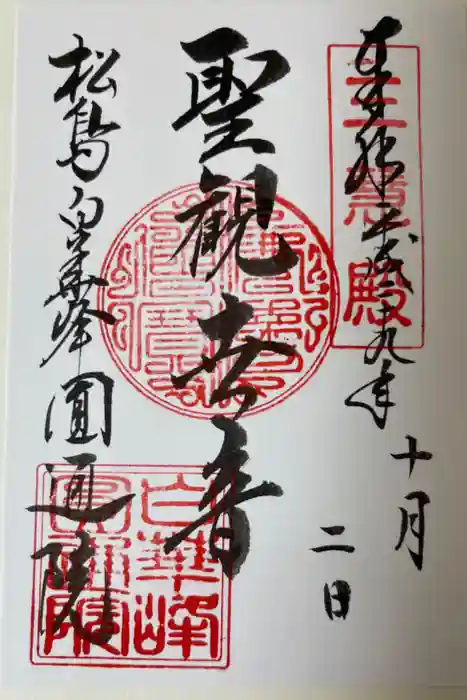 奉拝 平成二十九年
十月
二日
三慧殿
聖観世音
松島 白華峰 圓通院
白華峰
圓通院